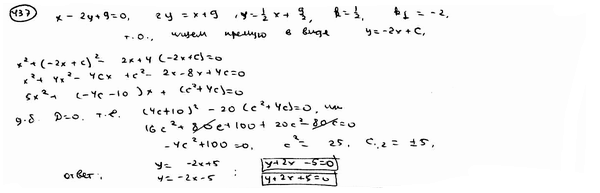 437 x - 2y + 9 = 0, 2y = x + 9, y = 1/2 x + 9/2, k = 1/2, k₁ = -2,
т.о., ищем прямую в виде y = -2x + C,
x² + (-2x + c)² - 2x + 4(-2x + c) = 0
x² + 4x² - 4cx + c² - 2x - 8x + 4c = 0
5x² + (-4c - 10)x + (c² + 4c) = 0
д.б. D = 0, т.е. (4c + 10)² - 20(c² + 4c) = 0, или
16c² + 80c + 100 + 20c² - 80c = 0
-4c² + 100 = 0, c² = 25, C₁,₂ = ±5,
ответ: y = -2x + 5 : y + 2x - 5 = 0
y = -2x - 5 y + 2x + 5 = 0